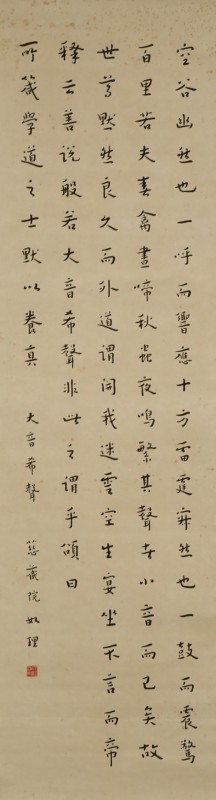 空谷幽然也一呼而響應十方雷霆寂然也一鼓而震驚
百里若夫春禽晝啼秋蟲夜鳴繁其聲者小音而已矣故
世尊默然良久而外道謂開我迷雲空生宴坐不言而帝
釋云善說般若大音希聲非此之謂乎頌曰
所箴學道之士默以養真 大音希聲 院如理